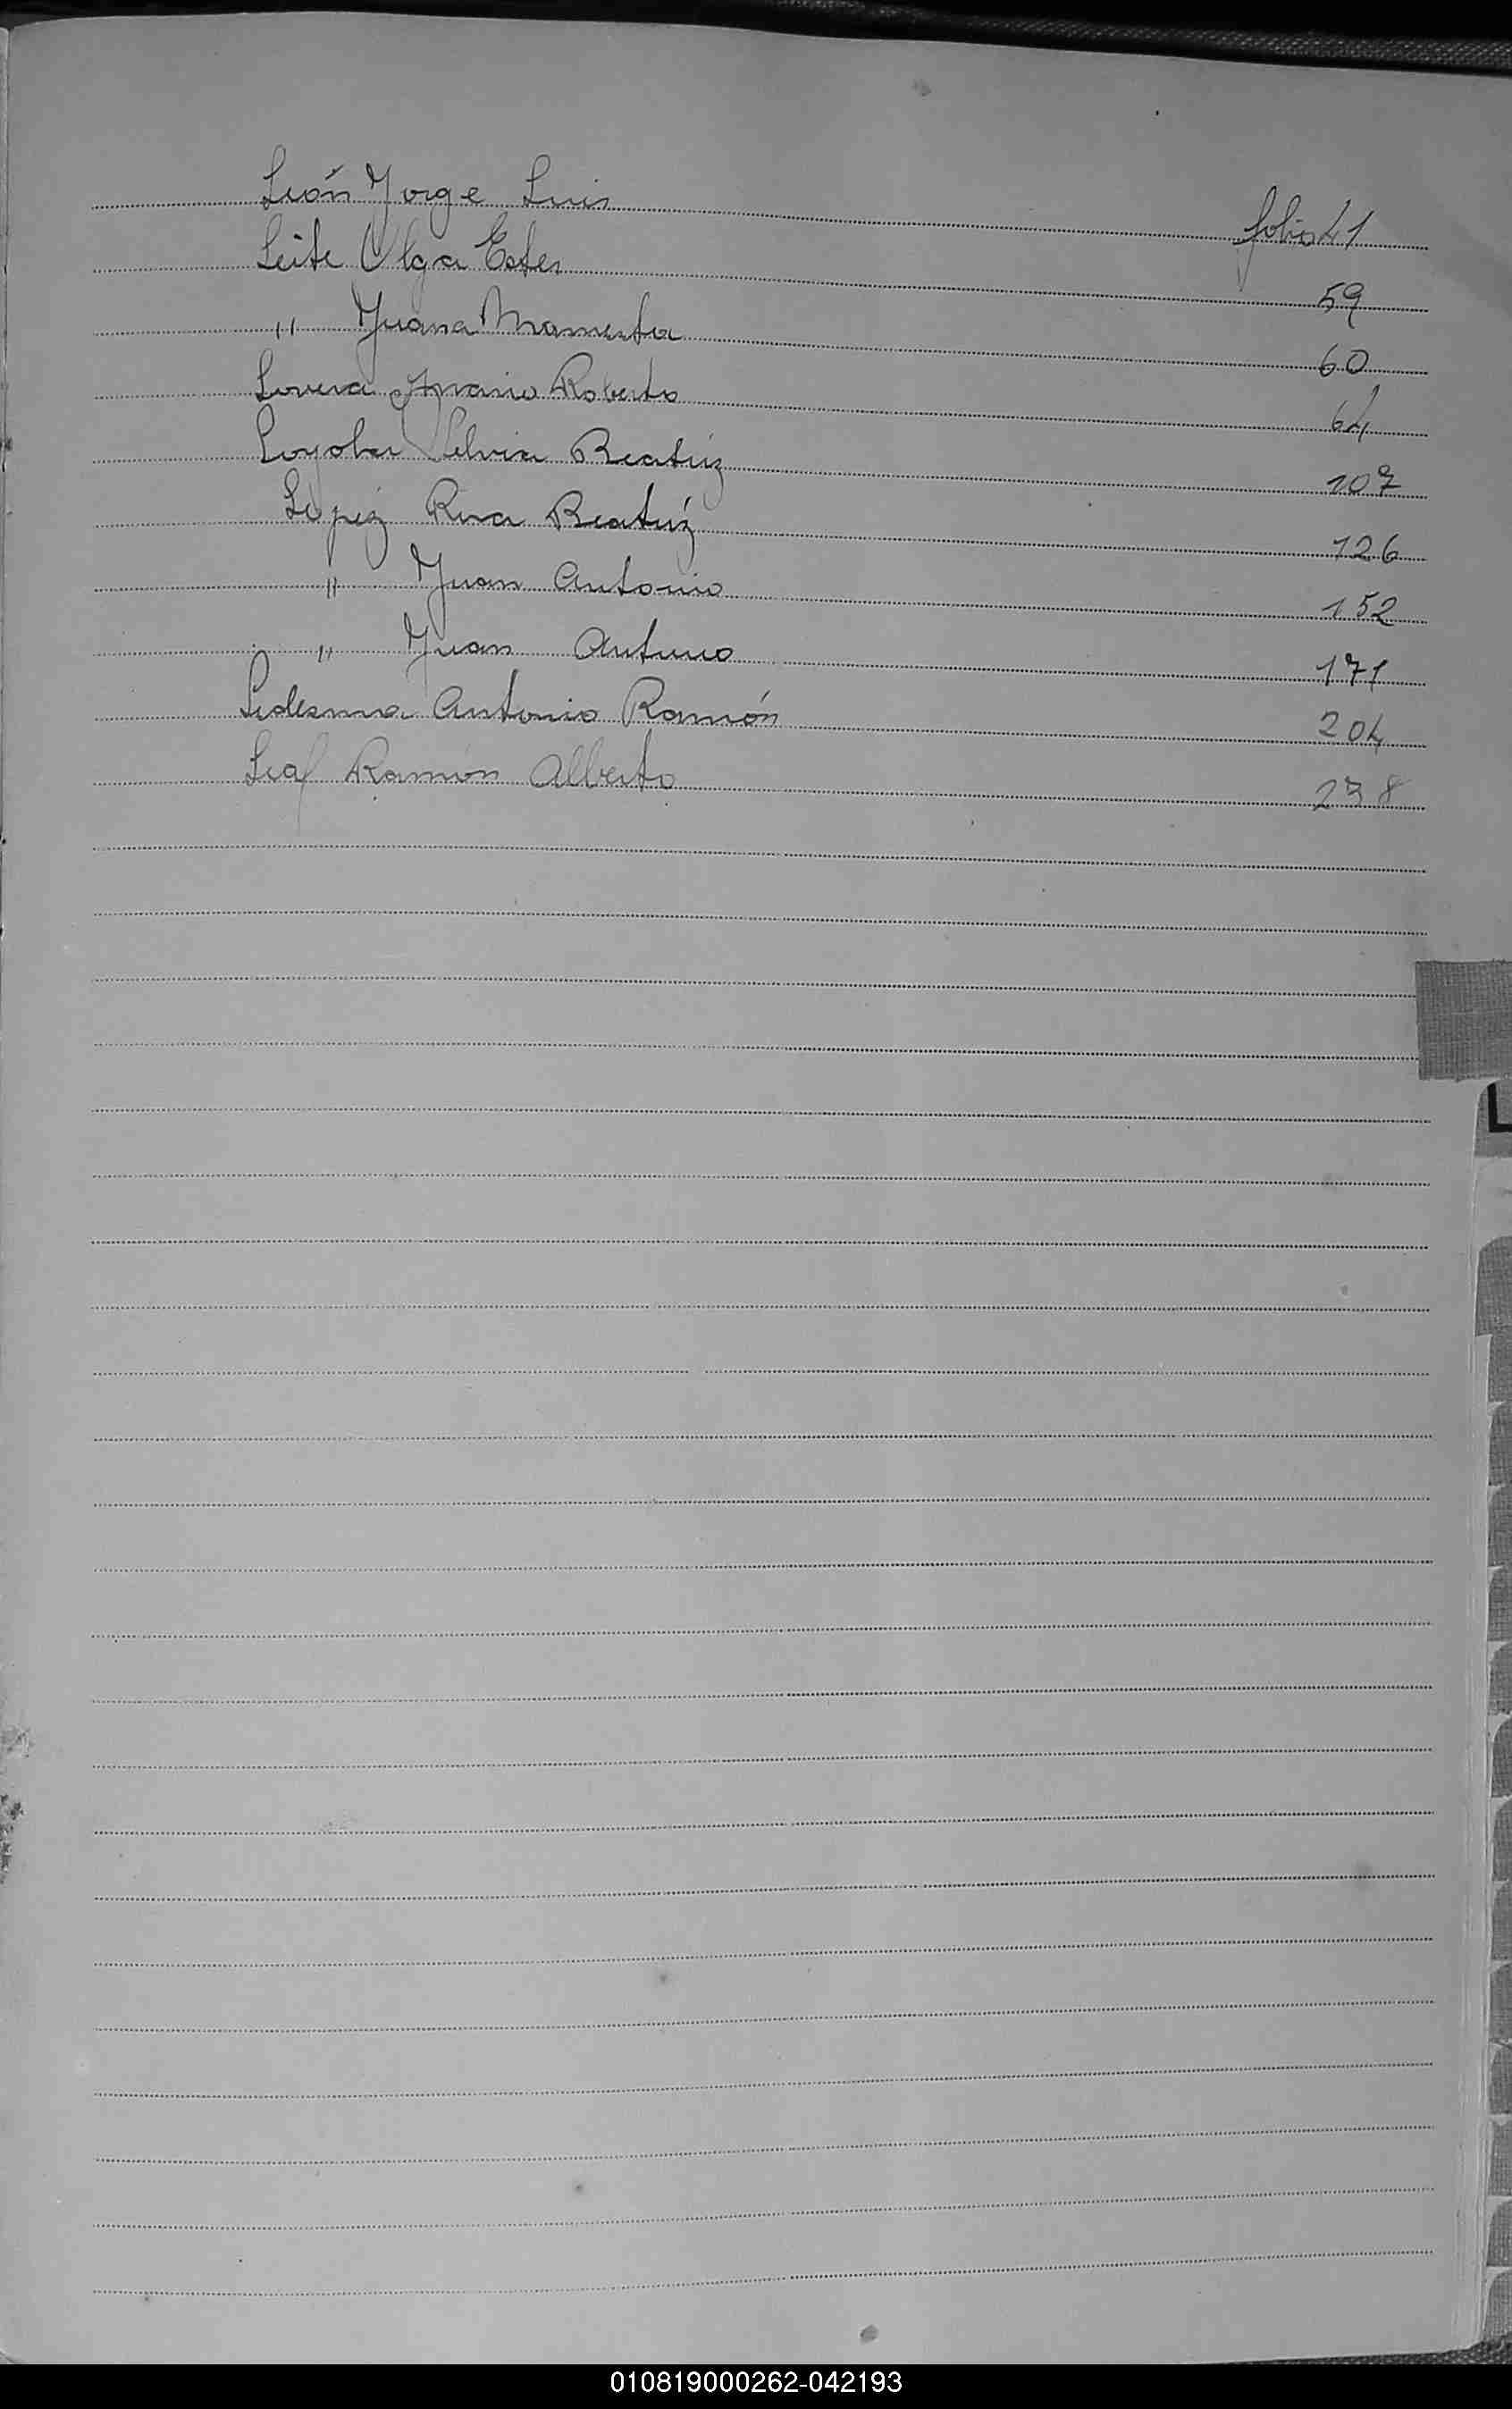 León Jorge Luis folio 41
Leite Olga Ester 59
" Juana 60
Lovera Mario Roberto 64
Loyola Silvia Beatriz 107
López Rosa Beatriz 126
" Juan Antonio 152
" Juan Antonio 171
Ledesma Antonio Ramón 204
Leal Ramón Alberto 238
L
010819000262-042193